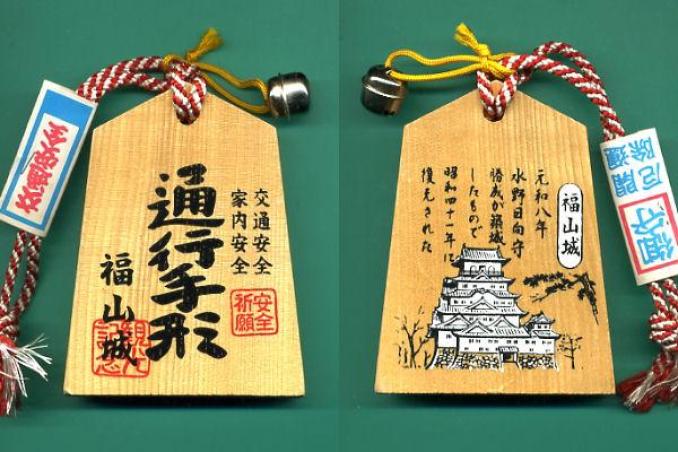 交通安全
家内安全
通行手形
福山城
安全
祈願
観光
記念
交通安全
福山城
元和八年
水野日向守
勝成が築城
したもので
昭和四十一年に
復元された
開運
厄除
御守